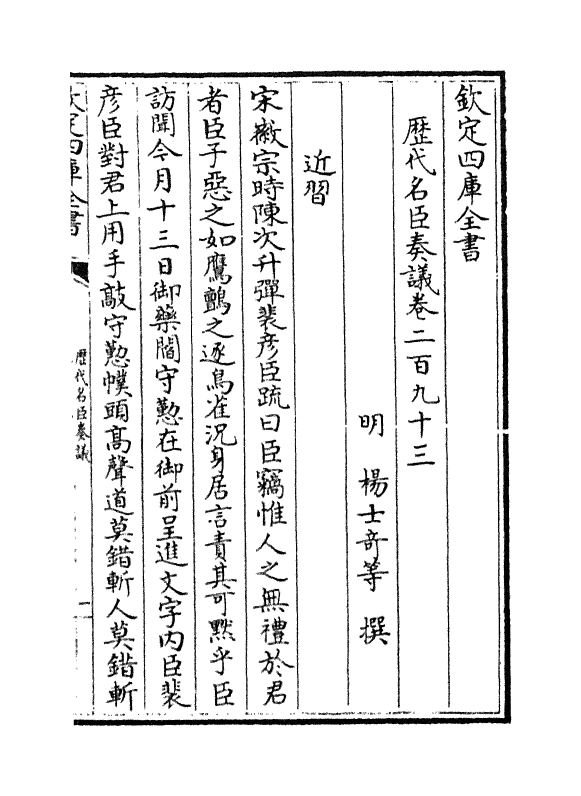 欽定四庫全書
歷代名臣奏議卷二百九十三
明 楊士奇等 撰
近習
宋徽宗時陳次升彈裴彥臣疏曰臣竊惟人之無禮於君
者臣子惡之如鷹鸇之逐鳥雀況身居言責其可黙乎臣
訪聞今月十三日御藥閻守懃在御前呈進文字内臣裴
彥臣對君上用手敲守懃幞頭高聲道莫錯斬人莫錯斬
欽定四庫全書
歷代名臣奏議
一